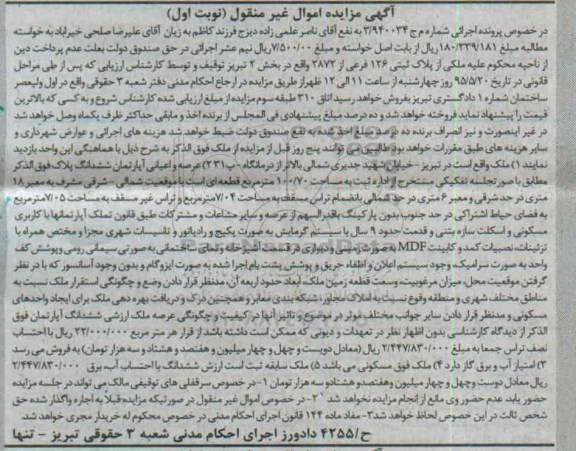 آگهی مزایده اموال غیر منقول (نوبت اول)
در خصوص پرونده اجرائی شماره م ج ۳/۹۴۰۰۳۴ به نفع آقای ناصر علمی زاده دیزج فرزند کاظم به زیان آقای علیرضا صلحی خیرآباد به خواسته
مطالبه مبلغ ۱۸۰/۳۳۹/۱۸۱ ریال از بابت اصل خواسته و مبلغ ۷/۵۰۰/۰۰۰ ریال نیم عشر اجرائی در حق صندوق دولت بعلت عدم پرداخت دین
از ناحیه محکوم علیه ملکی از پلاک ثبتی ۱۲۶ فرعی از ۲۸۷۲ واقع در بخش ۲ تبریز توقیف و توسط کارشناس ارزیابی که پس از طی مراحل
قانونی در تاریخ ۹۵/۵/۲۰ روز چهارشنبه از ساعت ۱۱ الی ۱۲ ظهر از طریق مزایده در ارجاع احکام مدنی دفتر شعبه ۳ حقوقی واقع در اول ولیعصر
ساختمان شماره ۱ دادگستری تبریز بفروش خواهد رسید اتاق ۳۱۰ طبقه سوم مزایده از مبلغ ارزیابی شده کارشناس شروع و به کسی که بالاترین
قیمت را پیشنهاد نماید فروخته خواهد شد و ده درصد مبلغ پیشنهادی فی المجلس از برنده اخذ و مابقی حداکثر ظرف یکماه وصول خواهد شد
در غیر اینصورت و نیز انصراف برنده ده درصد مبلغ اخذ شده به نفع صندوق دولت ضبط خواهد شد هزینه های اجرائی و عوارض شهرداری و
سایر هزینه های طبق مقررات خواهد بود طالبین می توانند پنج روز قبل از مزایده از ملک فوق الذکر به شرح ذیل با هماهنگی این واحد بازدید
نمایند ۱) ملک واقع است در تبریز - خیابان شهید جدیری شمالی بالاتر از درمانگاه - پ ۲۳۱) عرصه و اعیانی آپارتمان ششدانگ پلاک فوق الذکر
مطابق با صورتجلسه تفکیکی مستخرج از اداره ثبت به مساحت ۱۰۰/۷۰ مترمربع قطعه ای است با موقعیت شمالی - شرقی مشرف به معبر ۱۸
متری در حد شرقی و معبر ۶ متری در حد شمالی بانضمام تراس مسقف به مساحت ۷/۰۴ مترمربع و تراس غیر مسقف به مساحت ۷/۰۵ مترمربع
به فضای حیاط اشتراکی در حد جنوب بدون پارکینگ باقدرالسهم از عرصه و سایر مشاعات و مشترکات طبق قانون تملک آپارتمانها با کاربری
مسکونی و اسکلت سازه بتنی و قدمت حدود ۹ سال با سیستم گرمایش به صورت پکیج و رادیاتور و تاسیسات شهری مجزا و مختص همراه با
تزئینات، نصبیات کمد و کابینت MDF به صورت زمینی و دیواری در قسمت آشپزخانه و نمای ساختمانی به صورتی سیمانی رومی و پوشش کف
واحد به صورت سرامیک، وجود سیستم اعلان و اطفاء حریق و پوشش پشت بام اجرا شده به صورت ایزوگام و بدون وجود آسانسور که با در نظر
گرفتن موقعیت محل، میزان مرغوبیت، وسعت قطعه زمین ملک، ابعاد حدود اربعه آن، مدنظر قرار دادن وضع و چگونگی استقرار ملک نسبت به
مناطق مختلف شهری و منطقه وقوع نسبت به املاک مجاور، شبکه بندی معابر و همچنین درک و دریافت بهره دهی ملک برای ایجاد واحدهای
مسکونی و مدنظر قرار دادن سایر جوانب مختلف موثر در موضوع و تاثیر آنها در کیفیت و چگونگی عرصه ملک ارزشی ششدانگ آپارتمان فوق
الذکر از دیدگاه کارشناسی بدون اظهار نظر در تعهدات و دیونی که ممکن است داشته باشد از قرار هر متر مربع ۲۳/۰۰۰/۰۰۰ ریال با احتساب
نصف تراس جمعا به مبلغ ۲/۴۴۷/۸۳۰/۰۰۰ ریال (معادل دویست و چهل و چهار میلیون و هفتصد و هشتاد و سه هزار تومان) به فروش می رسد
۳) امتیاز آب و برق گاز دارد ۴) ملک فوق مسکونی می باشد ۵) ملک سابقه ثبت است ارزش ششدانگ با احتساب آب، برق ۲/۴۴۷/۸۳۰/۰۰۰
ریال معادل دویست وچهل و چهار میلیون وهفتصدو هشتادو سه هزار تومان ۱- در خصوص سرقفلی های توقیفی مالک می تواند در جلسه مزایده
حضور یابد عدم حضور وی مانع از انجام مزایده نخواهد شد ۲- در خصوص اموال غیر منقول در صورتیکه مزایده قبلا به اجاره واگذار شده حق
شخص ثالث در این خصوص لحاظ خواهد شد۳- مفاد ماده ۱۴۴ قانون اجرای احکام مدنی در خصوص محکوم له خریدار مجری خواهد شد.
ح/۴۲۵۵ دادورز اجرای احکام مدنی شعبه ۳ حقوقی تبریز - تنها